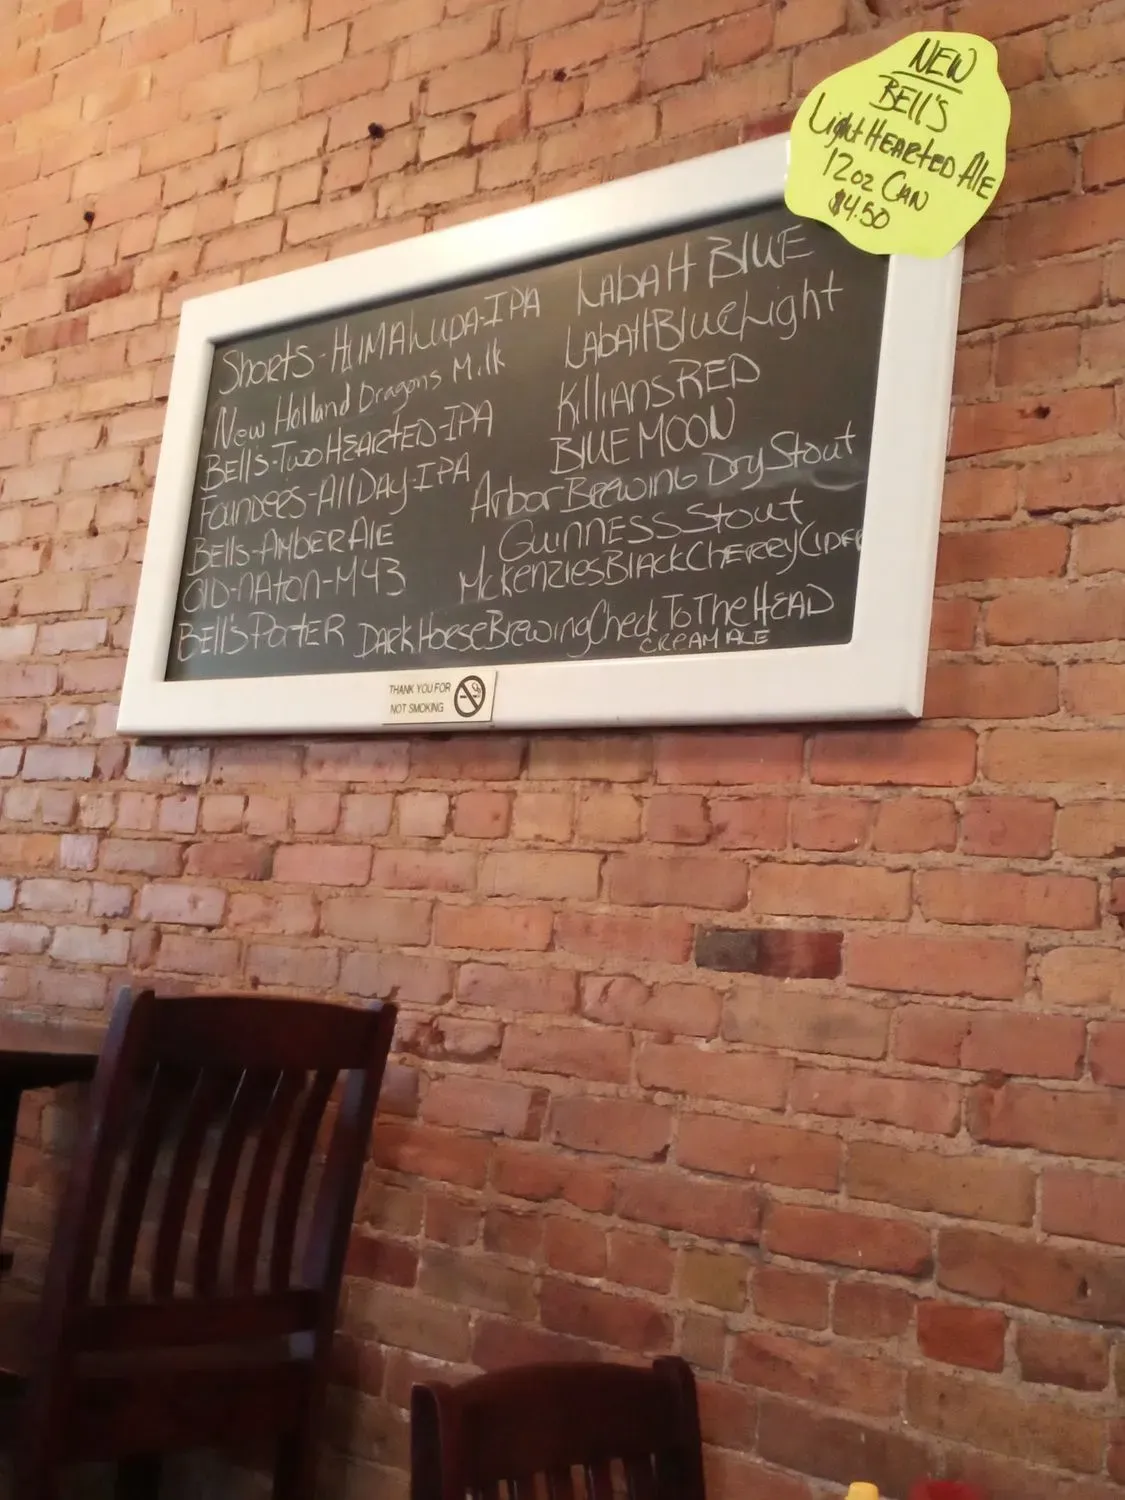 NEW
BEll's
LightHEARTED Ale
12oz CAN
$4.50
ShoRTS-HUMALUPA-IPA
New Holland Dragons Milk
BEllS-TwoHEARTED-IPA
FOUNDERS-AllDay-IPA
BEllS-AMBERAlE
OlD-NATON-M43
BEll'S PorTER
LAbaTT BlUE
LabaTTBlueLight
KilliANSRED
BLUE MOON
Arbor BREWING Dry Stout
GuiNNESS Stout
MckenziesBlAckCherryCiDER
DARkHorseBrewingCheck To The HEAD
CREAM ALE
THANK YOU FOR
NOT SMOKING